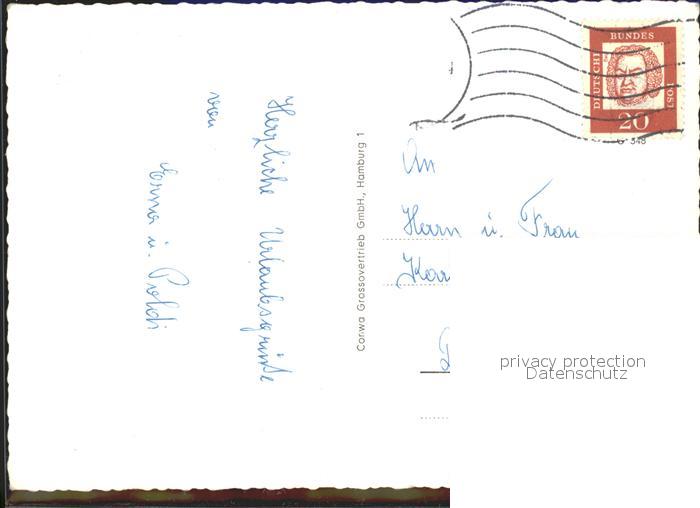 Herzliche Urlaubsgrüße
von
Erna u. Poldi
Corwa Grossovertrieb GmbH., Hamburg 1
DEUTSCHE
BUNDES
POST
20
An
Herrn u. Frau
Kar
privacy protection
Datenschutz